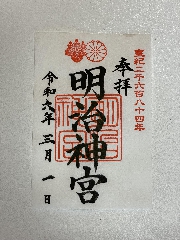 皇紀二千六百八十四年
奉拝
明治神宮
令和六年三月一日